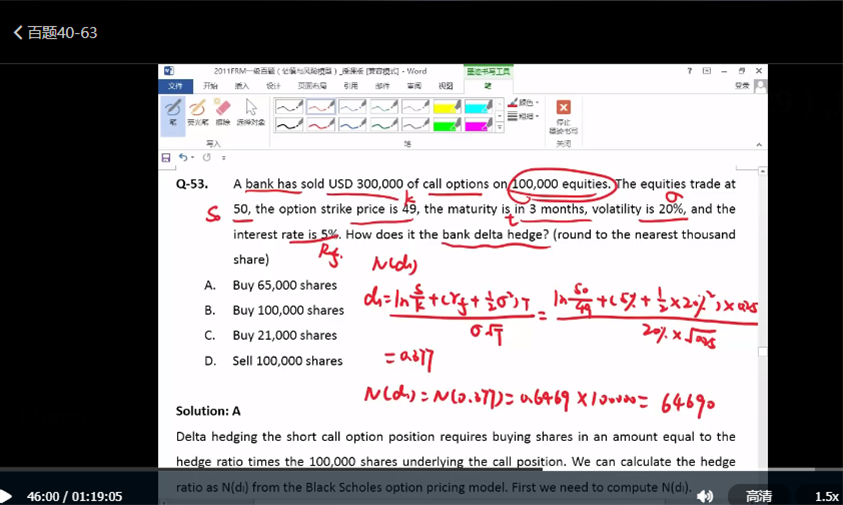 百题40-63
2011FRM一级百题（估值与风险模型）_  [兼容模式] - Word
墨迹书写工具
文件 开始 插入 设计 页面布局 引用 邮件 审阅 视图 笔
登录
笔 荧光笔 擦除 选择对象
颜色
粗细
停止
墨迹书写
写入 笔 关闭
Q-53. A bank has sold USD 300,000 of call options on 100,000 equities. The equities trade at
S₀ K σ
50, the option strike price is 49, the maturity is in 3 months, volatility is 20%, and the
t
interest rate is 5%. How does it the bank delta hedge? (round to the nearest thousand
Rf.
share)
N(d₁)
A. Buy 65,000 shares
B. Buy 100,000 shares
C. Buy 21,000 shares
D. Sell 100,000 shares
d₁= ln S/K +(rf+½σ²)T / σ√T = ln 50/49 +(5%+½×20%²)×0.25 / 20%×√0.25
=0.377
N(d₁)=N(0.377)=0.6469×100000=64690
Solution: A
Delta hedging the short call option position requires buying shares in an amount equal to the
hedge ratio times the 100,000 shares underlying the call position. We can calculate the hedge
ratio as N(d₁) from the Black Scholes option pricing model. First we need to compute N(d₁).
46:00 / 01:19:05 高清 1.5x